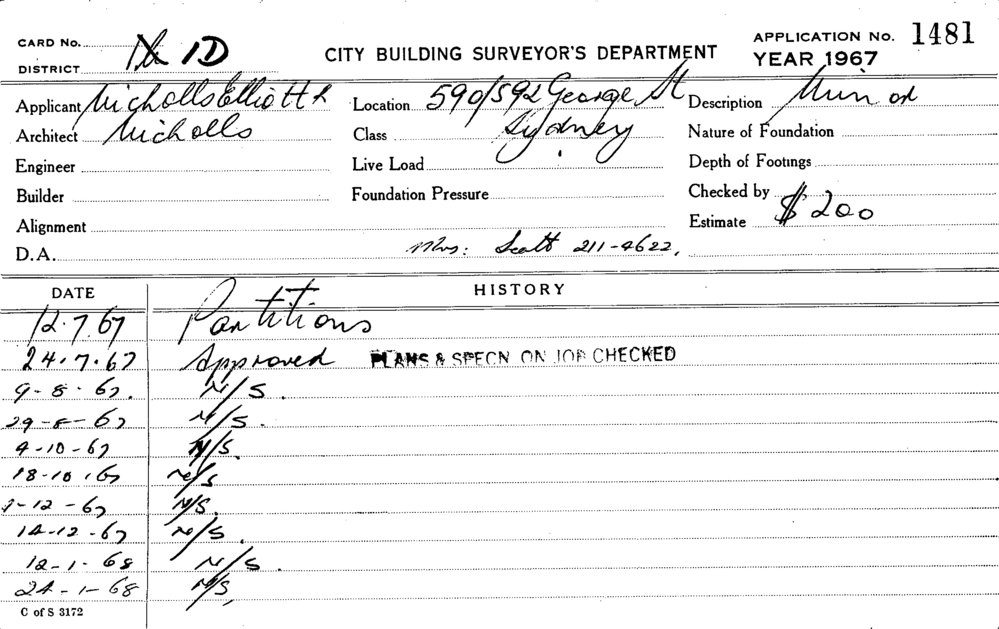 CARD No. 1D
CITY BUILDING SURVEYOR'S DEPARTMENT
APPLICATION No. 1481
DISTRICT
YEAR 1967
Applicant Nicholls Elliott & Location 590/592 George St Description Minor
Architect Nicholls Class Sydney Nature of Foundation
Engineer Live Load Depth of Footings
Builder Foundation Pressure Checked by
Alignment Estimate $200
D.A. Mrs: Scott 211-4622.
DATE HISTORY
12.7.67 Partitions
24.7.67 Approved PLANS & SPECN ON JOB CHECKED
9-8-67. N/S.
29-8-67 N/S.
4-10-67 N/S.
18-10-67 N/S
-12-67 N/S.
14-12-67 N/S.
12-1-68 N/S.
24-1-68 N/S,
C of S 3172